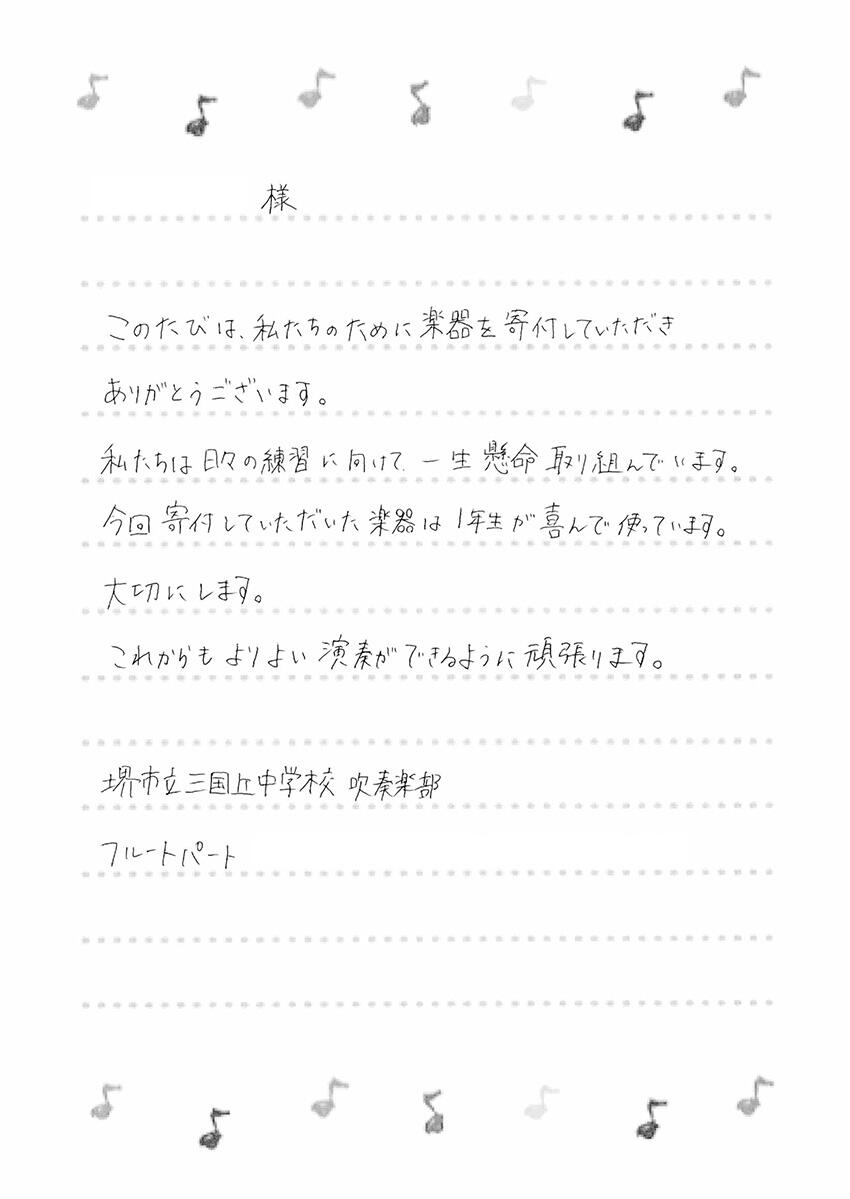 様
このたびは、私たちのために楽器を寄付していただき
ありがとうございます。
私たちは日々の練習に向けて、一生懸命取り組んでいます。
今回寄付していただいた楽器は1年生が喜んで使っています。
大切にします。
これからもよりよい演奏ができるように頑張ります。
堺市立三国丘中学校 吹奏楽部
フルートパート